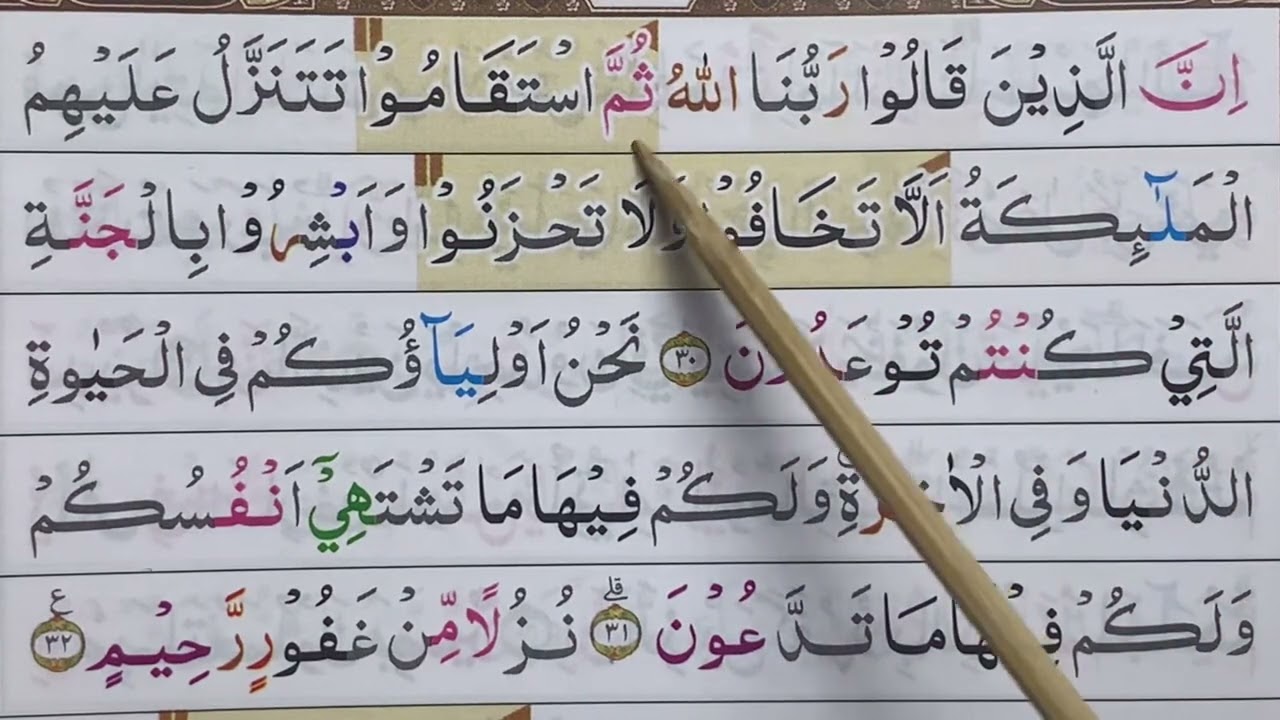 اِنَّ الَّذِيْنَ قَالُوْا رَبُّنَا اللّٰهُ ثُمَّ اسْتَقَامُوْا تَتَنَزَّلُ عَلَيْهِمُ
الْمَلٰٓئِكَةُ اَلَّا تَخَافُوْا وَلَا تَحْزَنُوْا وَاَبْشِرُوْا بِالْجَنَّةِ
الَّتِيْ كُنْتُمْ تُوْعَدُوْنَ ۝٣٠ نَحْنُ اَوْلِيَآؤُكُمْ فِي الْحَيٰوةِ
الدُّنْيَا وَفِي الْاٰخِرَةِ ۚ وَلَكُمْ فِيْهَا مَا تَشْتَهِيْٓ اَنْفُسُكُمْ
وَلَكُمْ فِيْهَا مَا تَدَّعُوْنَ ۝٣١ؕ نُزُلًا مِّنْ غَفُوْرٍ رَّحِيْمٍ ۝٣٢ ع